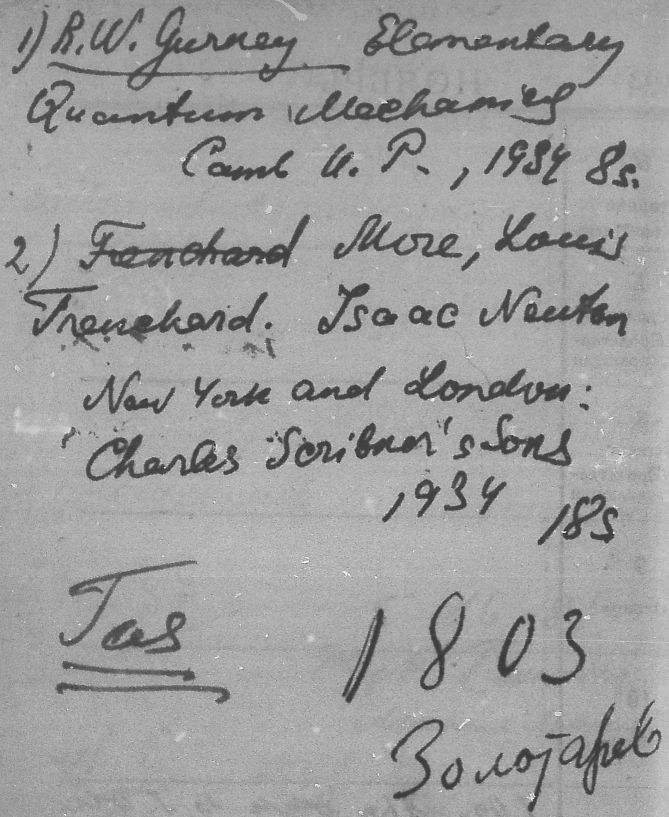 1) R.W. Gurney Elementary
Quantum Mechanics
Camb U. P., 1934 8s.
2) Trenchard More, Louis
Trenchard. Isaac Newton
New York and London:
Charles Scribner's Sons
1934 18s
1803
Золотарев